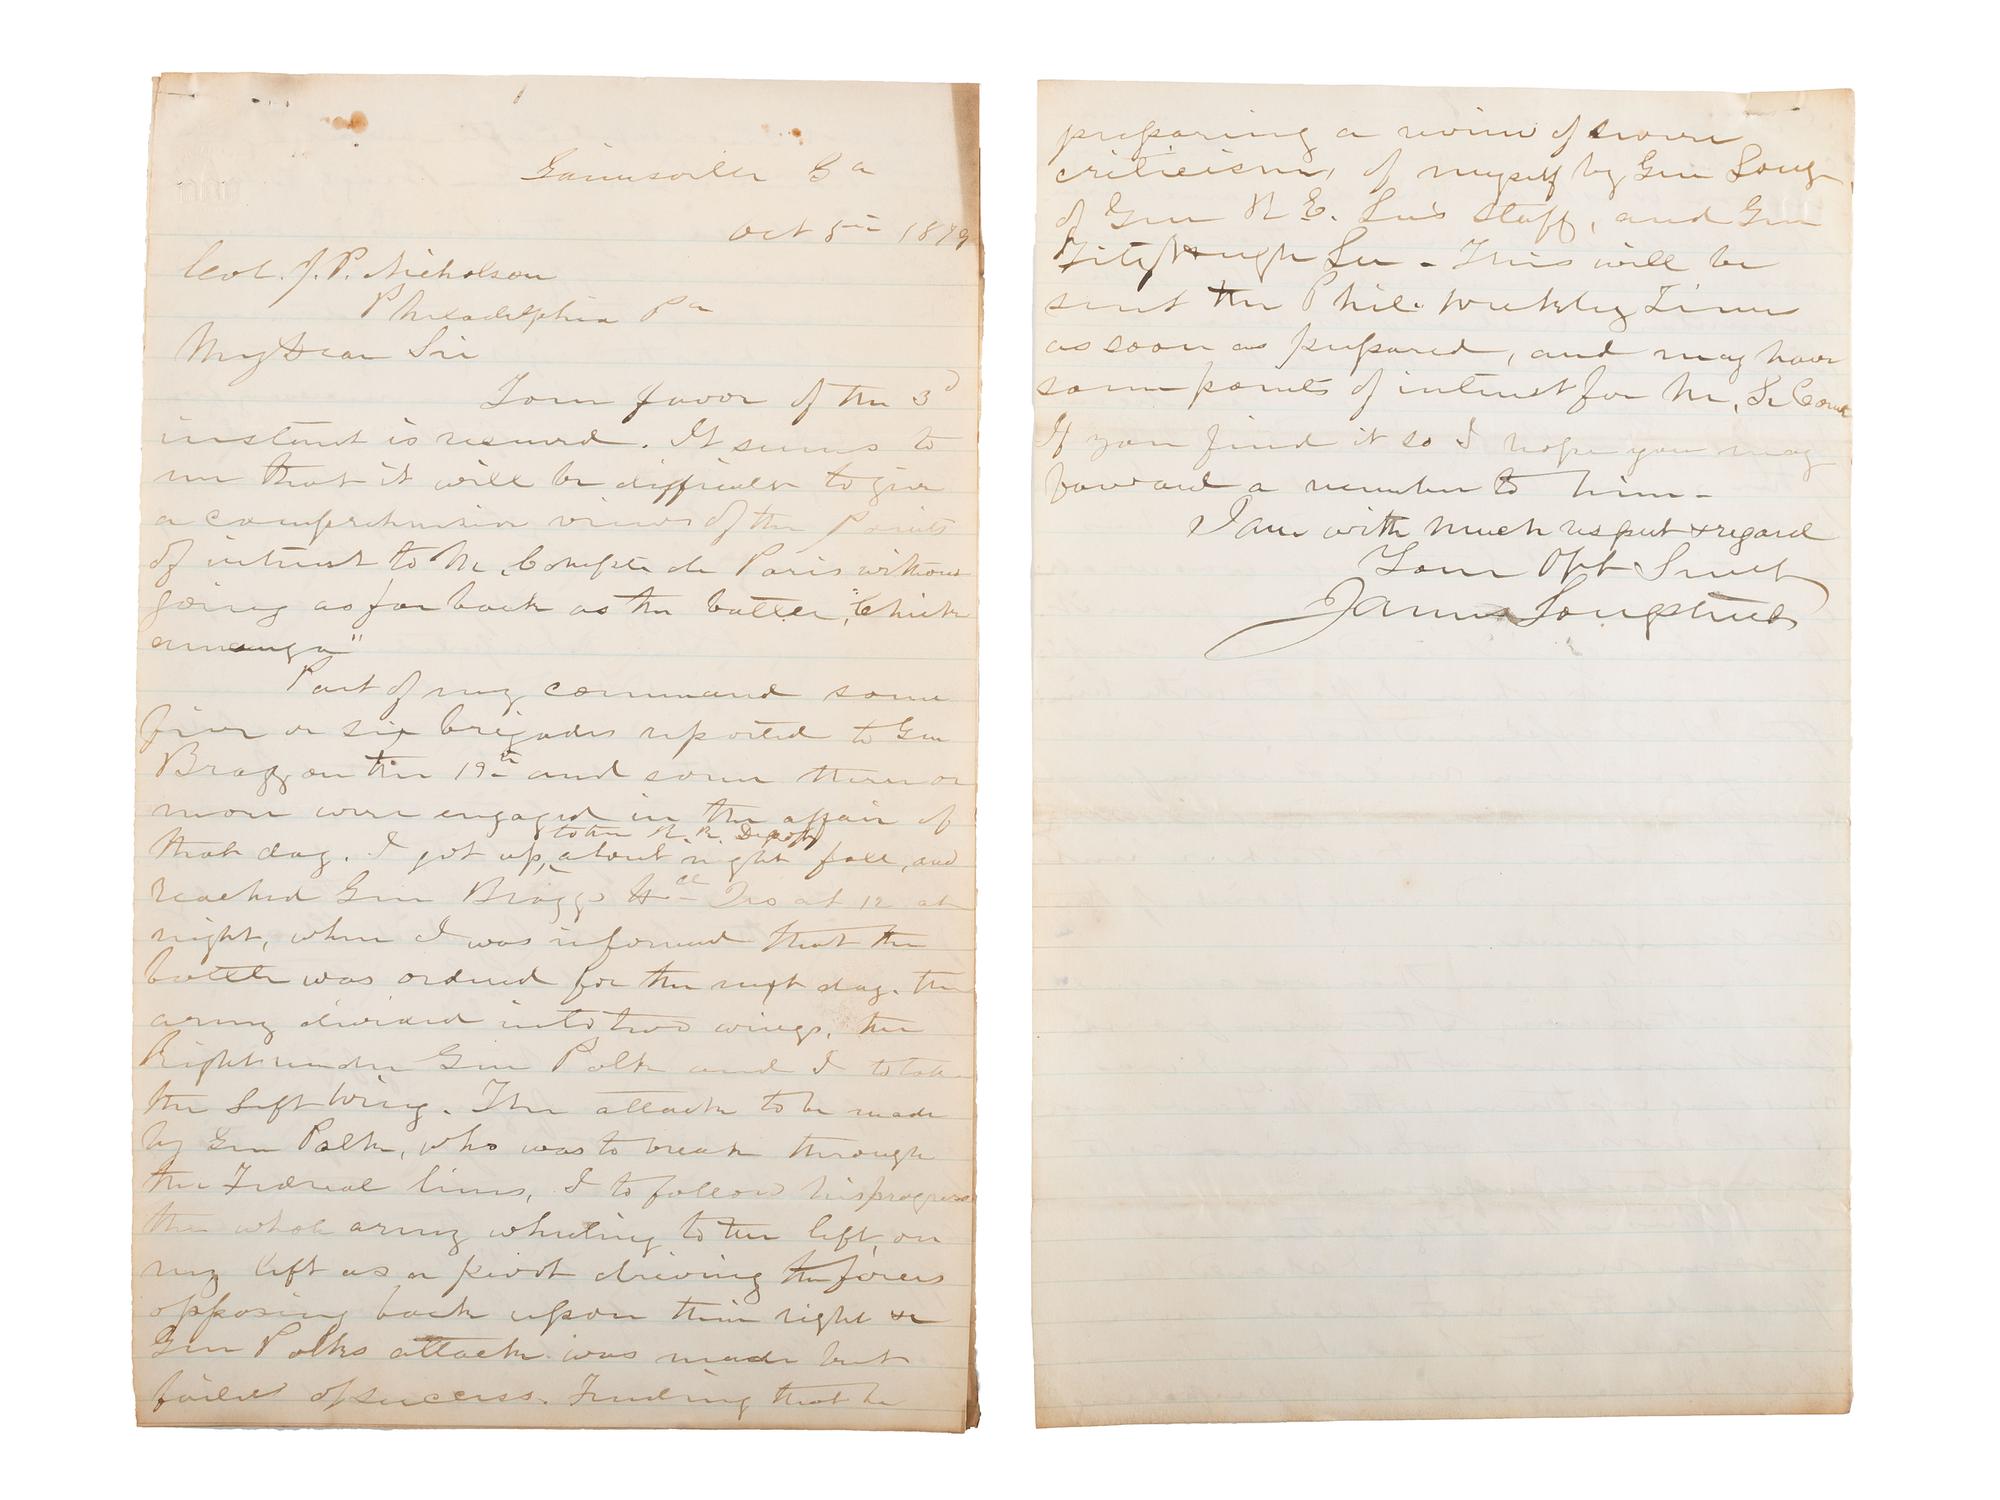 Gainesville Ga
Oct 5th 1879
Col. J. P. Nicholson
Philadelphia Pa
My Dear Sir
Your favor of the 3d
instant is received. It seems to
me that it will be difficult to give
a comprehensive views of the Points
of interest to Mr. Compte de Paris without
going as far back as the battle, "Chick
amauga"
Part of my command some
five or six brigades reported to Gen
Bragg on the 19th and some three or
more were engaged in the affair of
that day. I got up, to the R. R. Depot about night fall, and
reached Gen Braggs Hd Qrs at 12 at
night, when I was informed that the
battle was ordered for the next day. the
army divided into two wings, the
Right under Gen Polk and I to take
the Left Wing. The attack to be made
by Gen Polk, who was to break through
the Federal lines, I to follow his progress
the whole army wheeling to the left, on
my left as a pivot driving the forces
opposing back upon their right &c
Gen Polks attack was made but
failed of success. Finding that he
preparing a review of some
criticisms, of myself by Gen Long
of Gen R E. Lee's Staff, and Gen
Fitzhugh Lee - This will be
sent the Phil. Weekly Times
as soon as prepared, and may have
some points of interest for Mr, Le Comte
If you find it so I hope you may
forward a number to him -
I am with much respect & regard
Your Obt Servt
James Longstreet